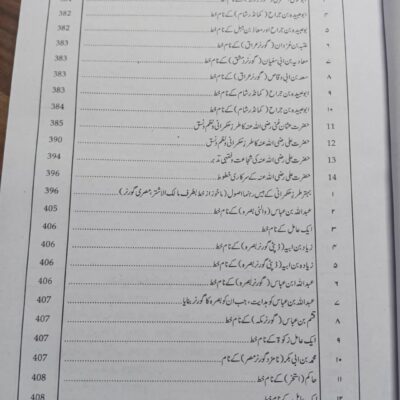 ابوعبیدہ بن جراح (کمانڈر شام) کے نام خط 382
ابوعبیدہ بن جراح اور معاذ بن جبل کے نام خط 382 ۵
عتبہ بن غزوان (گورنر عراق) کے نام خط 383
معاویہ بن ابی سفیان (گورنر دمشق) کے نام خط 383
سعد بن ابی وقاص (گورنر عراق) کے نام خط 383 ۸
ابوعبیدہ بن جراح (کمانڈر شام) کے نام خط 383 ۹
ابوعبیدہ بن جراح (کمانڈر شام) کے نام خط 384 ۱۰
حضرت عثمان غنی رضی اللہ عنہ کا طرز حکمرانی و نظم و نسق 385 11
حضرت علی رضی اللہ عنہ کا طرز حکمرانی و نظم و نسق 390 12
حضرت علی رضی اللہ عنہ کی شجاعت و فقہی تدبر 394 13
حضرت علی رضی اللہ عنہ کے سرکاری خطوط 396 14
بہتر طرز حکمرانی کے بیس رہنما اصول (ماخوذ از خط بطرف مالک الاشتر مصری گورنر) 396 ۱
عبداللہ بن عباس (والئی بصرہ) کے نام خط 405 ۲
ایک عامل کے نام خط 405 ۳
زیاد بن ابیہ (ڈپٹی گورنر بصرہ) کے نام خط 406 ۴
زیاد بن ابیہ (ڈپٹی گورنر بصرہ) کے نام خط 406 ۵
عبداللہ ابن عباس (گورنر بصرہ) کے نام خط 406 ۶
عبداللہ بن عباس کو ہدایت، جب ان کو بصرہ کا گورنر بنایا 407 ۷
قثم بن عباس (گورنر مکہ) کے نام خط 407 ۸
ایک عامل زکوٰۃ کے نام خط 407 ۹
محمد بن ابی بکر (نامزد گورنر مصر) کے نام 407 ۱۰
حاکم (اصطخر) کے نام خط 408 ۱۱
ایک عامل کے نام خط 408